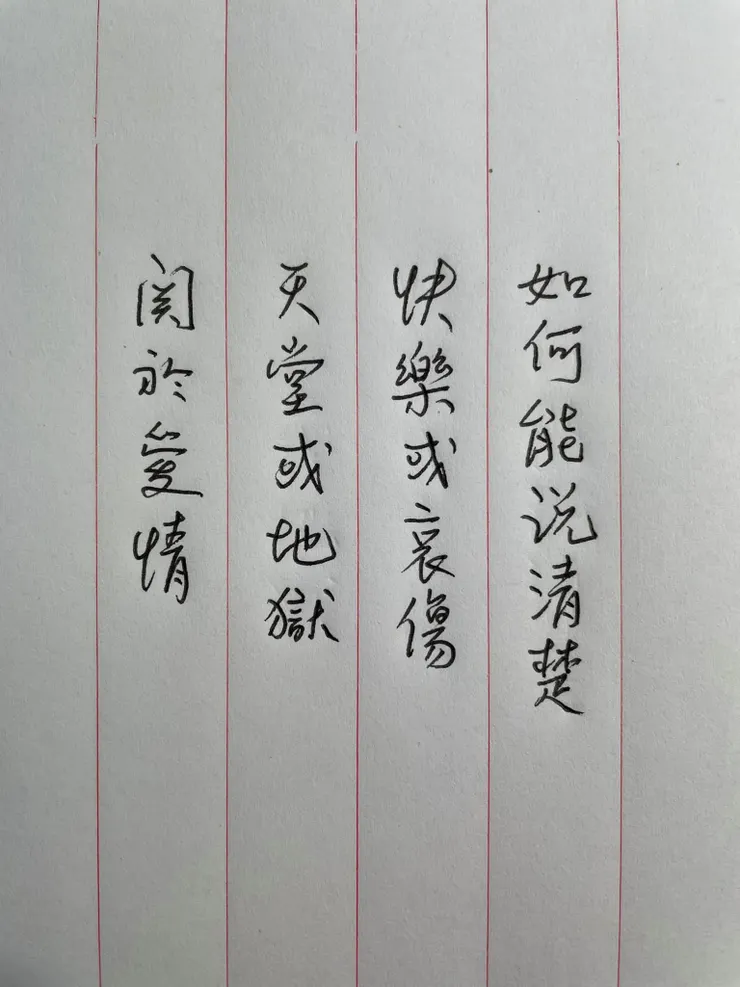 如何能说清楚
快樂或哀傷
天堂或地獄
関於愛情